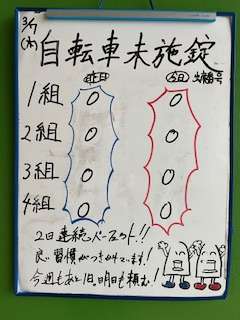 3/7
(木)
自転車未施錠
昨日 今日 出席番号
1組 0 0
2組 0 0
3組 0 0
4組 0 0
2日連続パーフェクト!!
良い習慣がつきかけています!
今週もあと1日。明日も頼む!